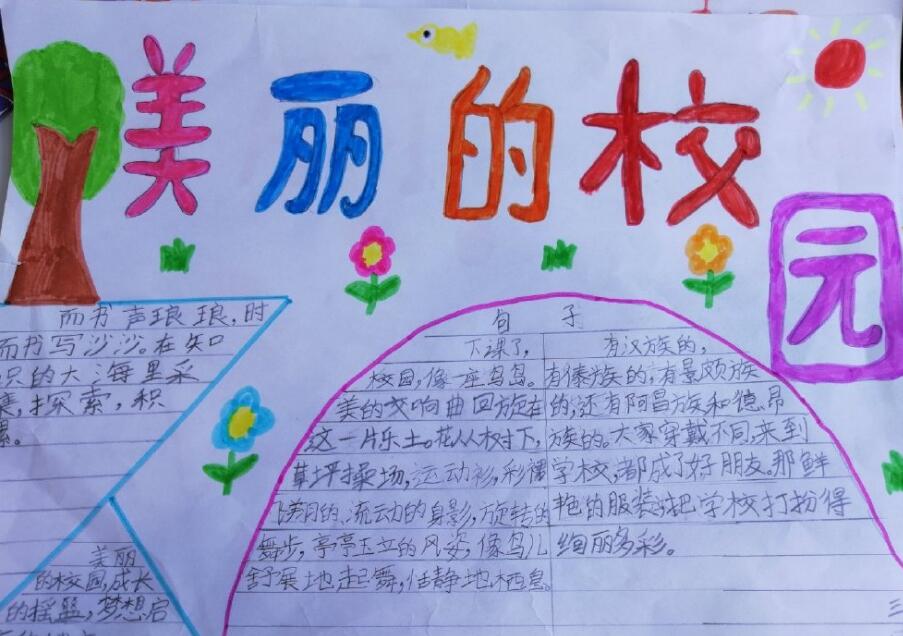 美丽的校园
而书声琅琅,时
而书写沙沙。在知
识的大海里采
集,探索,积
累。
美丽
的校园,成长
的摇篮,梦想启
句子
下课了,
校园,像一座鸟岛。
美的交响曲回旋在
这一片乐土。花丛树下,
草坪操场,运动衫,彩裙
的、流动的身影,旋转的
舞步,亭亭玉立的风姿,像鸟儿
舒展地起舞,恬静地栖息。
有汉族的,
有傣族的,有景颇族
的,还有阿昌族和德昂
族的。大家穿戴不同,来到
学校,都成了好朋友。那鲜
艳的服装,把学校打扮得
绚丽多彩。
三